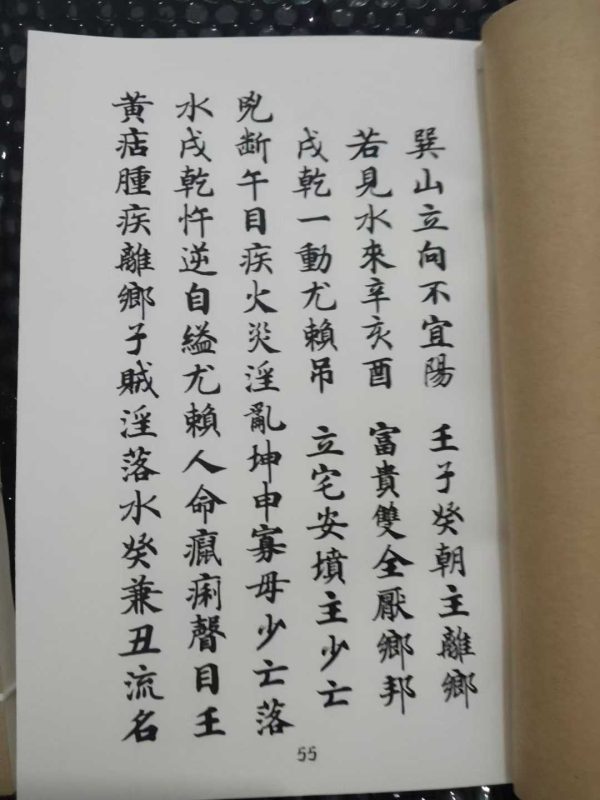 巽山立向不宜陽 王子癸朝主離鄉
若見水來辛亥酉 富貴雙全厭鄉邦
戌乾一動尤賴吊 立宅安墳主少亡
兇斷午目疾火災淫亂坤申寡母少亡落
水戌乾忤逆自縊尤賴人命瘋痢聲目王
黃痁腫疾離鄉子賊淫落水癸兼丑流名
55